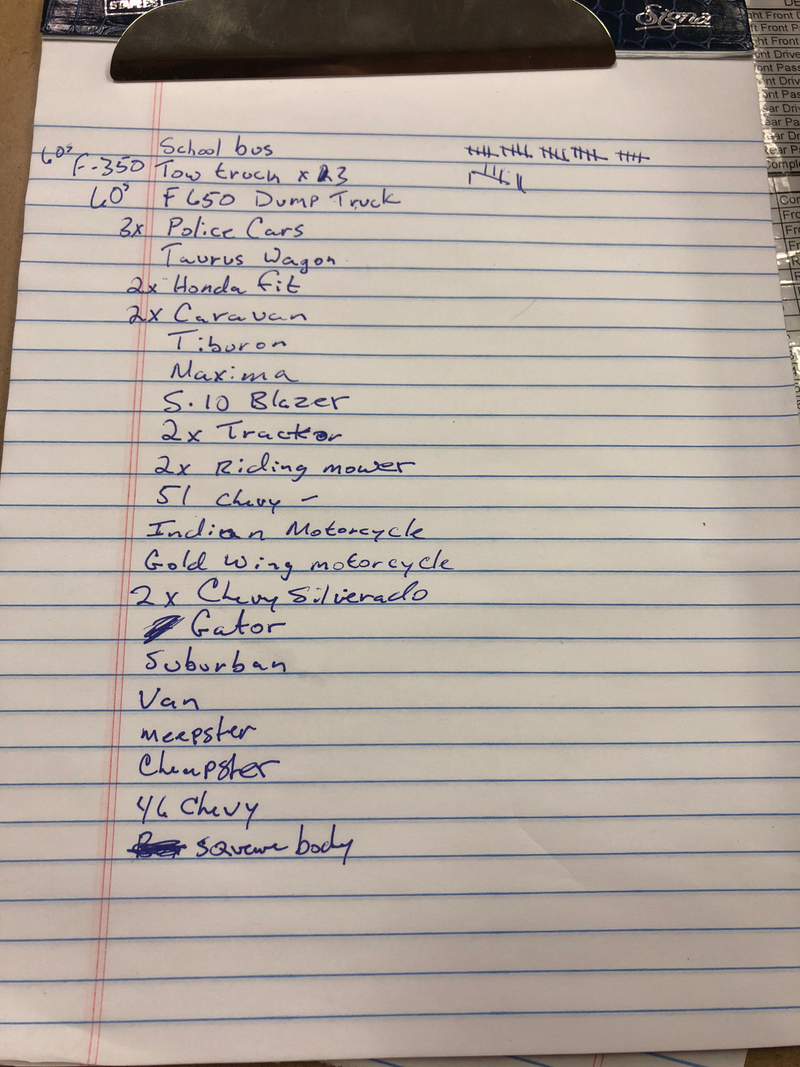 STAPLES
Signa
School bus
60's F-350 Tow truck x 3
60's F650 Dump Truck
3x Police Cars
Taurus Wagon
2x Honda fit
2x Caravan
Tiburon
Maxima
S-10 Blazer
2x Tracktor
2x Riding mower
51 Chevy -
Indian Motorcycle
Gold Wing motorcycle
2 x Chevy Silverado
Gator
Suburban
Van
meepster
Cheapster
46 Chevy
square body